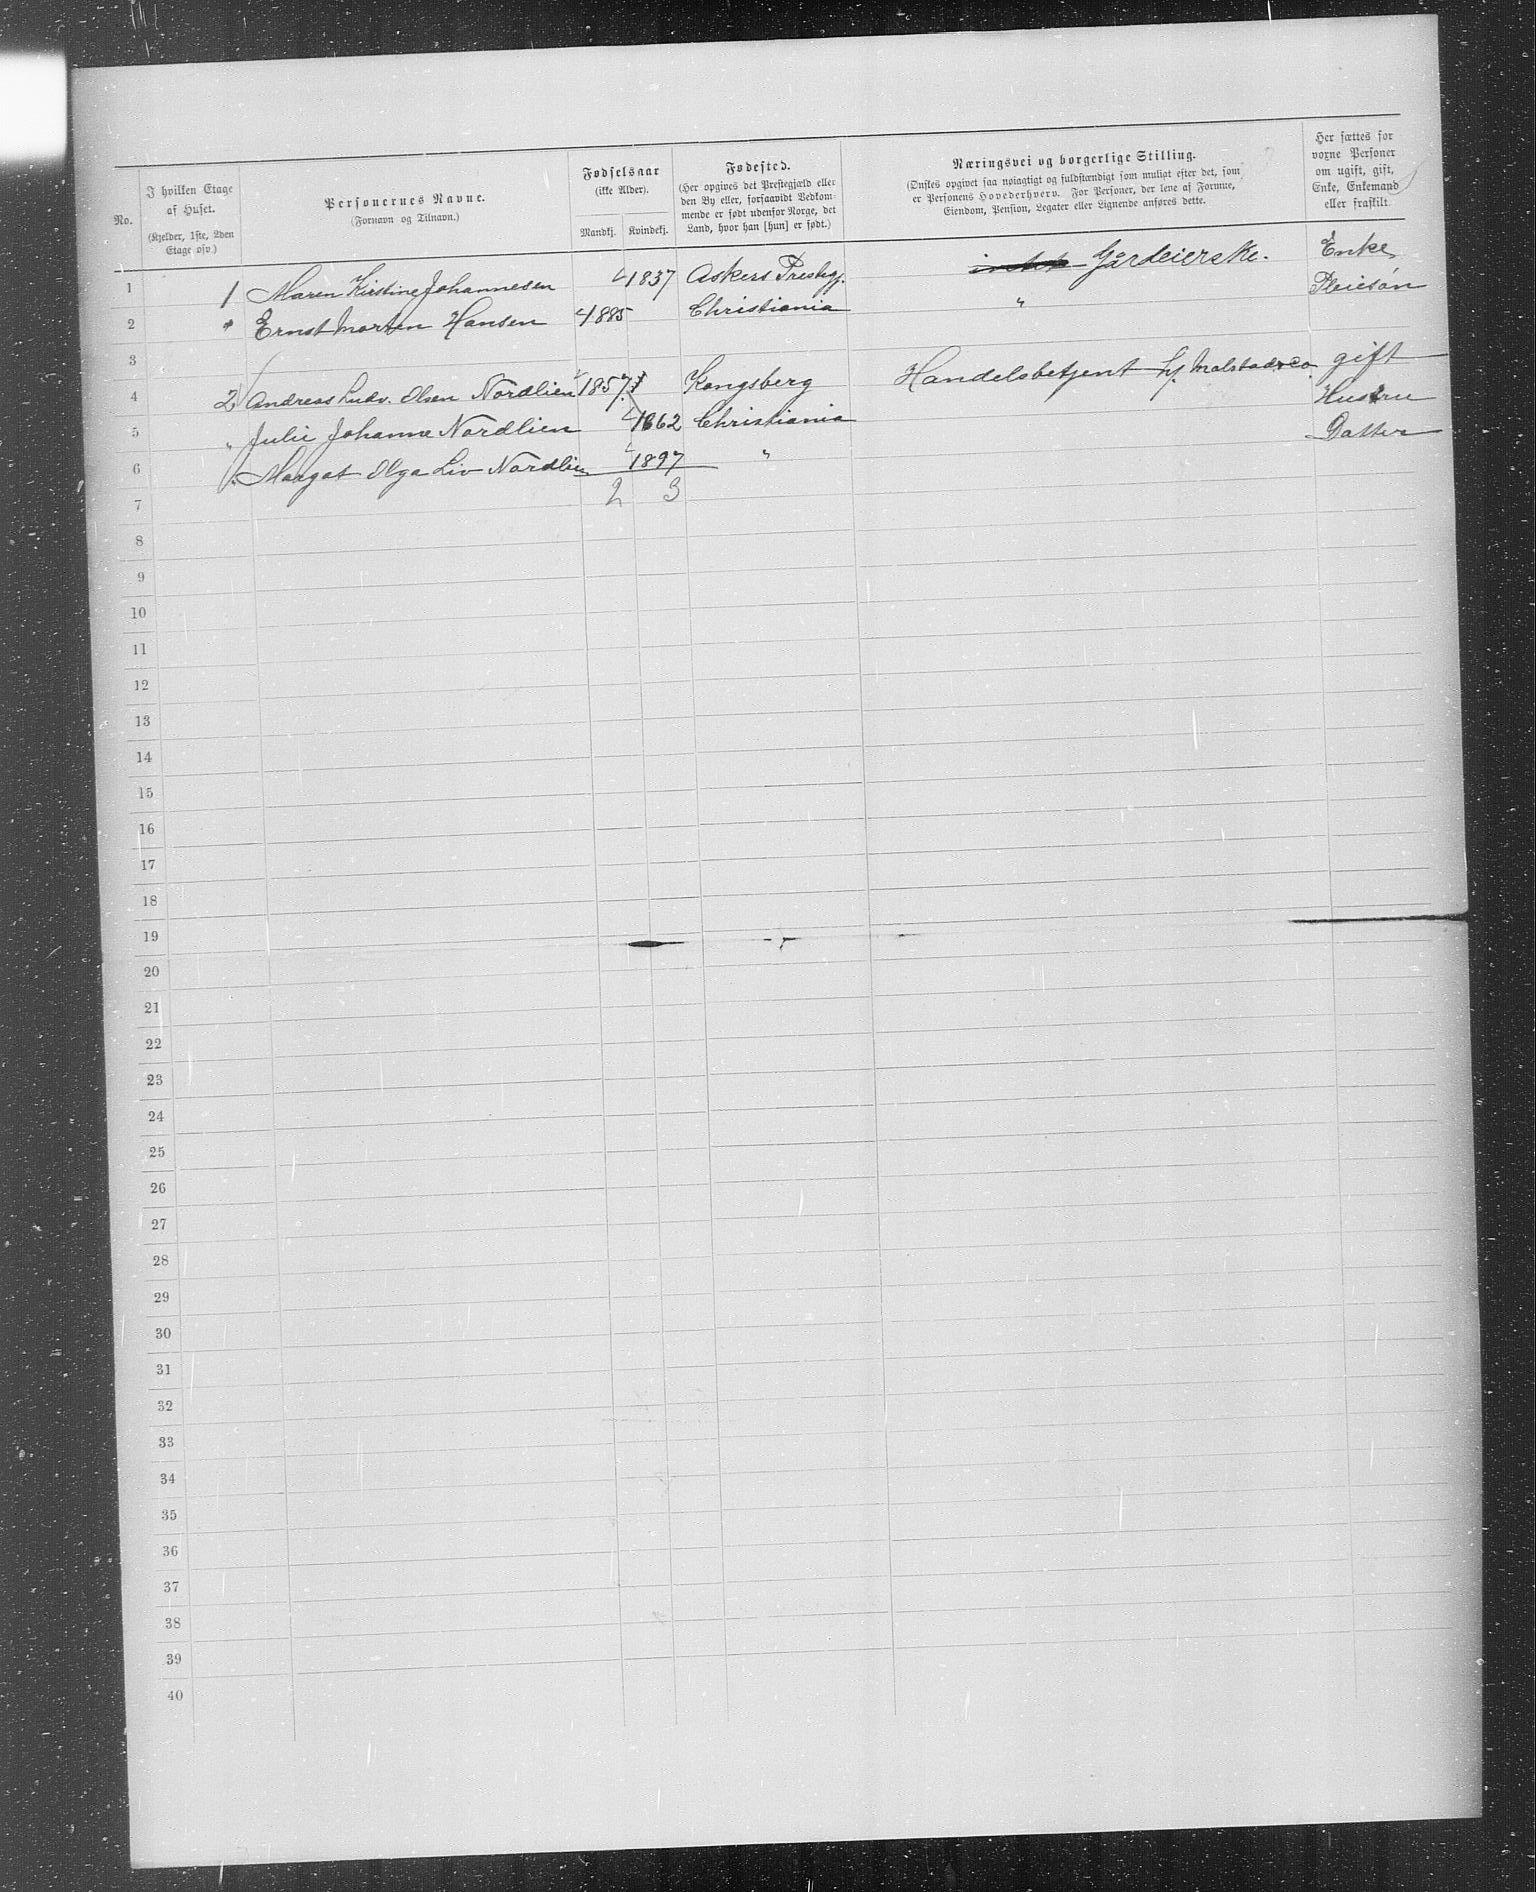 No.
I hvilken Etage
af Huset.
(Kjelder, 1ste, 2den
Etage osv.)
Personernes Navne.
(Fornavn og Tilnavn.)
Fødselsaar
(ikke Alder).
Mandkj. Kvindekj.
Fødested.
(Her opgives det Prestegjæld eller
den By eller, forsaavidt Vedkom-
mende er født udenfor Norge, det
Land, hvor han [hun] er født.)
Næringsvei og borgerlige Stilling.
(Ønskes opgivet saa nøiagtigt og fuldstændigt som muligt efter det, som
er Personens Hovederhverv. For Personer, der leve af Formue,
Eiendom, Pension, Legater eller Lignende anføres dette.
Her sættes for
voxne Personer
om ugift, gift,
Enke, Enkemand
eller fraskilt.
1 1 Maren Kirstine Johannesen 1837 Askers Prestegj. Gårdeierske. Enke
2 " Ernst Morten Hansen 1885 Christiania " Pleiesøn
3
4 2 Andreas Ludv. Olsen Nordlien 1857 Kongsberg Handelsbetjent hj. Malstad & Co. gift
5 " Julie Johanne Nordlien 1862 Christiania Hustru
6 " Margot Olga Liv Nordlien 1897 " Datter
7 2 3
8
9
10
11
12
13
14
15
16
17
18
19
20
21
22
23
24
25
26
27
28
29
30
31
32
33
34
35
36
37
38
39
40